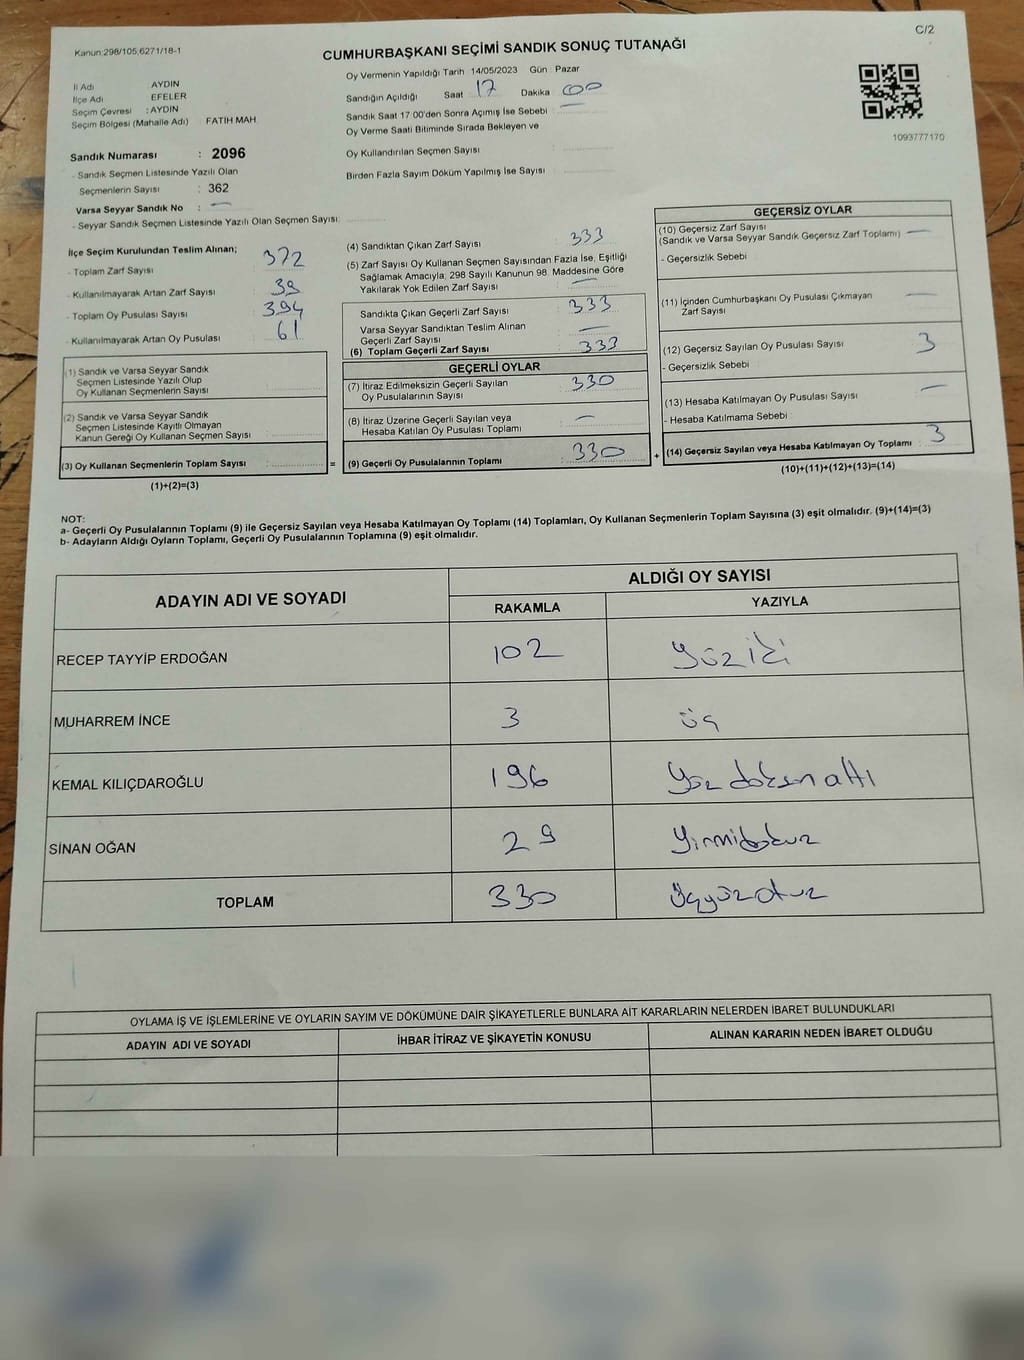 C/2
Kanun:298/105,6271/18-1
CUMHURBAŞKANI SEÇİMİ SANDIK SONUÇ TUTANAĞI
İl Adı : AYDIN
İlçe Adı : EFELER
Seçim Çevresi : AYDIN
Seçim Bölgesi (Mahalle Adı) FATİH MAH
Oy Vermenin Yapıldığı Tarih 14/05/2023 Gün : Pazar
Sandığın Açıldığı Saat 17 Dakika 00
Sandık Saat 17:00'den Sonra Açılmış İse Sebebi : —
Oy Verme Saati Bitiminde Sırada Bekleyen ve
Oy Kullandırılan Seçmen Sayısı :
Birden Fazla Sayım Döküm Yapılmış İse Sayısı :
1093777170
Sandık Numarası : 2096
- Sandık Seçmen Listesinde Yazılı Olan
Seçmenlerin Sayısı : 362
Varsa Seyyar Sandık No : —
- Seyyar Sandık Seçmen Listesinde Yazılı Olan Seçmen Sayısı:
İlçe Seçim Kurulundan Teslim Alınan;
- Toplam Zarf Sayısı : 372
- Kullanılmayarak Artan Zarf Sayısı : 39
- Toplam Oy Pusulası Sayısı : 394
- Kullanılmayarak Artan Oy Pusulası : 61
(1) Sandık ve Varsa Seyyar Sandık
Seçmen Listesinde Yazılı Olup
Oy Kullanan Seçmenlerin Sayısı :
(2) Sandık ve Varsa Seyyar Sandık
Seçmen Listesinde Kayıtlı Olmayan
Kanun Gereği Oy Kullanan Seçmen Sayısı :
(3) Oy Kullanan Seçmenlerin Toplam Sayısı : =
(1)+(2)=(3)
(4) Sandıktan Çıkan Zarf Sayısı : 333
(5) Zarf Sayısı Oy Kullanan Seçmen Sayısından Fazla İse, Eşitliği
Sağlamak Amacıyla; 298 Sayılı Kanunun 98. Maddesine Göre
Yakılarak Yok Edilen Zarf Sayısı : —
Sandıkta Çıkan Geçerli Zarf Sayısı : 333
Varsa Seyyar Sandıktan Teslim Alınan
Geçerli Zarf Sayısı : —
(6) Toplam Geçerli Zarf Sayısı : 333
GEÇERLİ OYLAR
(7) İtiraz Edilmeksizin Geçerli Sayılan
Oy Pusulalarının Sayısı : 330
(8) İtiraz Üzerine Geçerli Sayılan veya
Hesaba Katılan Oy Pusulası Toplamı : —
(9) Geçerli Oy Pusulalarının Toplamı : 330 +
GEÇERSİZ OYLAR
(10) Geçersiz Zarf Sayısı
(Sandık ve Varsa Seyyar Sandık Geçersiz Zarf Toplamı) —
- Geçersizlik Sebebi :
(11) İçinden Cumhurbaşkanı Oy Pusulası Çıkmayan
Zarf Sayısı : —
(12) Geçersiz Sayılan Oy Pusulası Sayısı : 3
- Geçersizlik Sebebi :
(13) Hesaba Katılmayan Oy Pusulası Sayısı : —
- Hesaba Katılmama Sebebi :
(14) Geçersiz Sayılan veya Hesaba Katılmayan Oy Toplamı : 3
(10)+(11)+(12)+(13)=(14)
NOT:
a- Geçerli Oy Pusulalarının Toplamı (9) ile Geçersiz Sayılan veya Hesaba Katılmayan Oy Toplamı (14) Toplamları, Oy Kullanan Seçmenlerin Toplam Sayısına (3) eşit olmalıdır. (9)+(14)=(3)
b- Adayların Aldığı Oyların Toplamı, Geçerli Oy Pusulalarının Toplamına (9) eşit olmalıdır.
ADAYIN ADI VE SOYADI
ALDIĞI OY SAYISI
RAKAMLA YAZIYLA
RECEP TAYYİP ERDOĞAN 102 Yüziki
MUHARREM İNCE 3 üç
KEMAL KILIÇDAROĞLU 196 Yüz doksan altı
SİNAN OĞAN 29 Yirmidokuz
TOPLAM 330 Üçyüzotuz
OYLAMA İŞ VE İŞLEMLERİNE VE OYLARIN SAYIM VE DÖKÜMÜNE DAİR ŞİKAYETLERLE BUNLARA AİT KARARLARIN NELERDEN İBARET BULUNDUKLARI
ADAYIN ADI VE SOYADI İHBAR İTİRAZ VE ŞİKAYETİN KONUSU ALINAN KARARIN NEDEN İBARET OLDUĞU